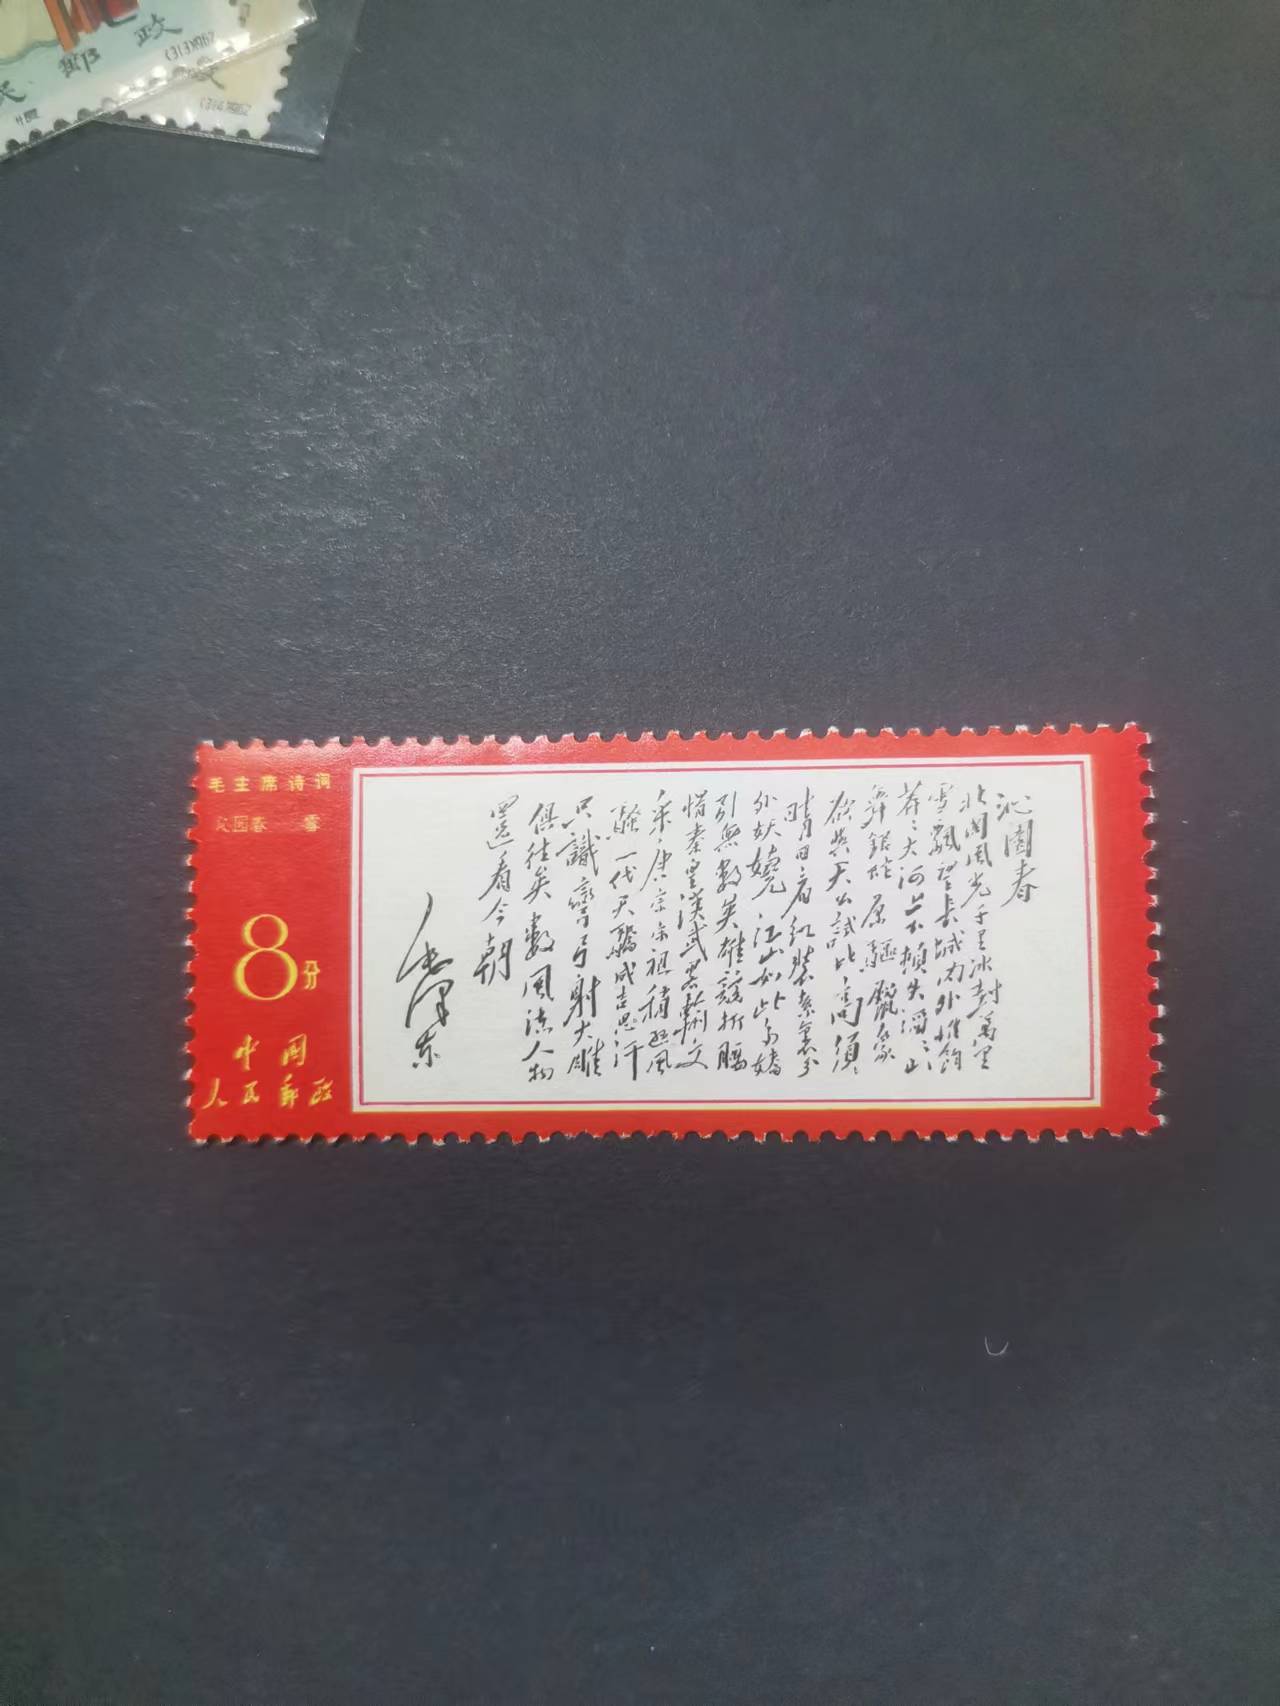 邮政
政
毛主席诗词
沁园春 雪
8分
中国
人民郵政
沁園春
北国風光千里冰封萬里
雪飄望长城内外惟餘
莽々大河上下頓失滔々山
舞銀蛇原驅臘象
欲與天公試比高須
晴日看红装素裹分
外妖嬈江山如此多嬌
引無數英雄競折腰
惜秦皇漢武畧輸文
采唐宗宋祖稍遜風
騷一代天驕成吉思汗
只識彎弓射大雕
俱往矣數風流人物
還看今朝
毛泽东